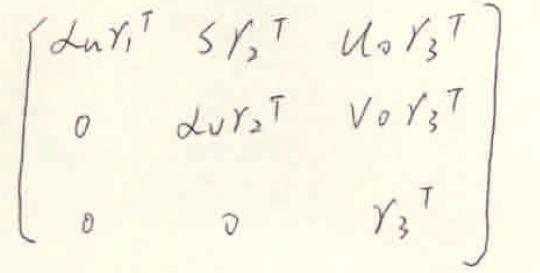 αu r₁ᵀ s r₂ᵀ u₀ r₃ᵀ
0 αv r₂ᵀ v₀ r₃ᵀ
0 0 r₃ᵀ